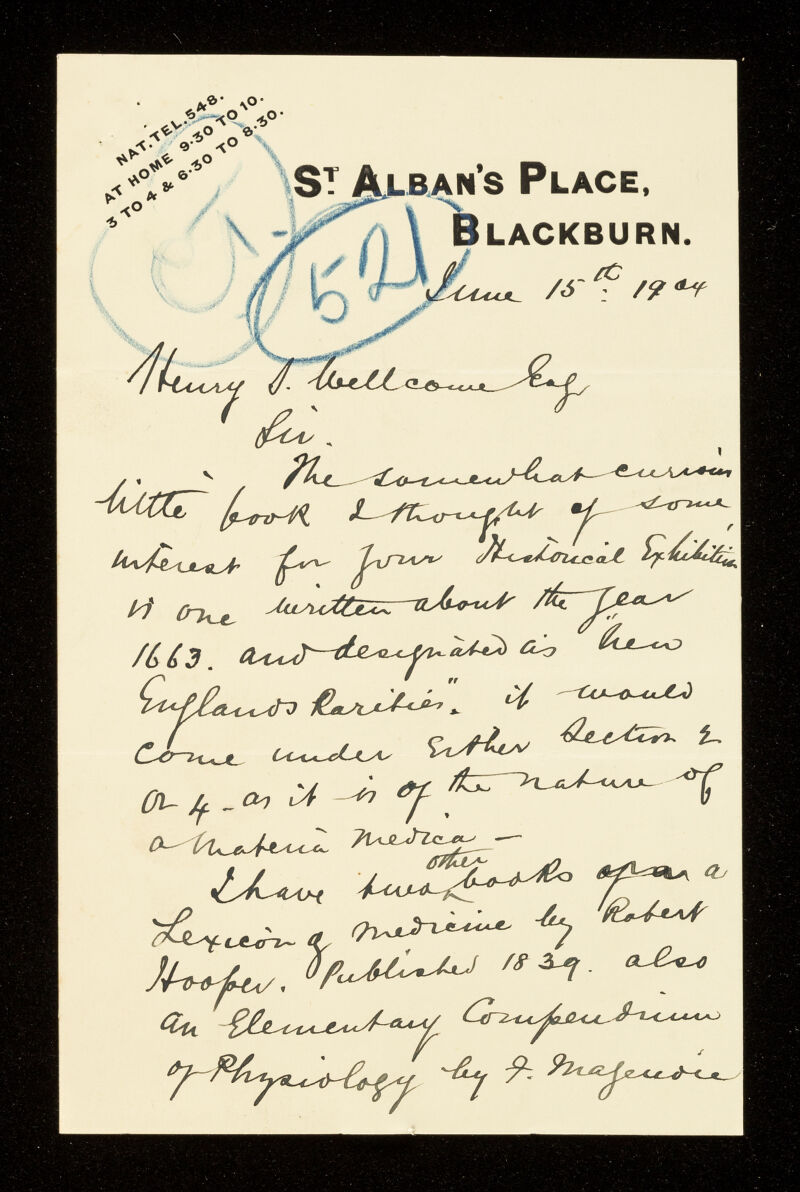 NAT. TEL. 548.
AT HOME 9·30 TO 10.
3 TO 4 & 6·30 TO 8·30.
ST. ALBAN'S PLACE,
BLACKBURN.
521
June 15th. 1904
Henry S. Wellcome Esq
Sir.
The somewhat curious
little book I thought of some
interest for your Historical Exhibition
is one written about the year
1663. and designated as "New
Englands Rarities". it would
come under Either Section 2
or 4 - as it is of the nature of
a Materia Medica -
I have two other books a
Lexicon of Medicine by Robert
Hooper. Published 1839. also
an Elementary Compendium
of Physiology by F. Magendie